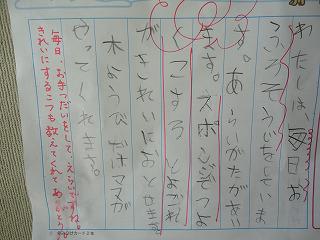 わたしは、毎日お
ふろそうじをしていま
す。あらいかたがあ
ます。スポンジでつよ
くこするとよごれ
がきれいにおとせます。
木よう日だけママが
やってくれます。
毎日、お手つだいをして、えらいですね。
きれいにするこつも教えてくれてありがとう。